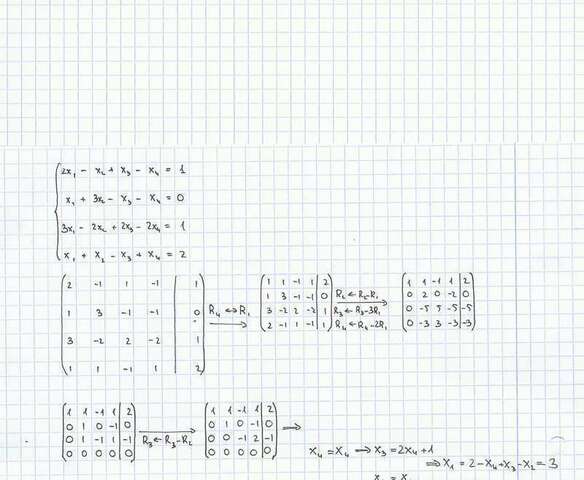 2x₁ - x₂ + x₃ - x₄ = 1
x₁ + 3x₂ - x₃ - x₄ = 0
3x₁ - 2x₂ + 2x₃ - 2x₄ = 1
x₁ + x₂ - x₃ + x₄ = 2
2 -1 1 -1 | 1
1 3 -1 -1 | 0
3 -2 2 -2 | 1
1 1 -1 1 | 2
R₄ ↔ R₁
1 1 -1 1 | 2
1 3 -1 -1 | 0
3 -2 2 -2 | 1
2 -1 1 -1 | 1
R₂ ← R₂-R₁
R₃ ← R₃-3R₁
R₄ ← R₄-2R₁
1 1 -1 1 | 2
0 2 0 -2 | 0
0 -5 5 -5 | -5
0 -3 3 -3 | -3
1 1 -1 1 | 2
0 1 0 -1 | 0
0 1 -1 1 | -1
0 0 0 0 | 0
R₃ ← R₃-R₂
1 1 -1 1 | 2
0 1 0 -1 | 0
0 0 -1 2 | -1
0 0 0 0 | 0
⇒
x₄ = x₄ ⇒ x₃ = 2x₄ + 1
⇒ x₁ = 2 - x₄ + x₃ - x₂ = 3